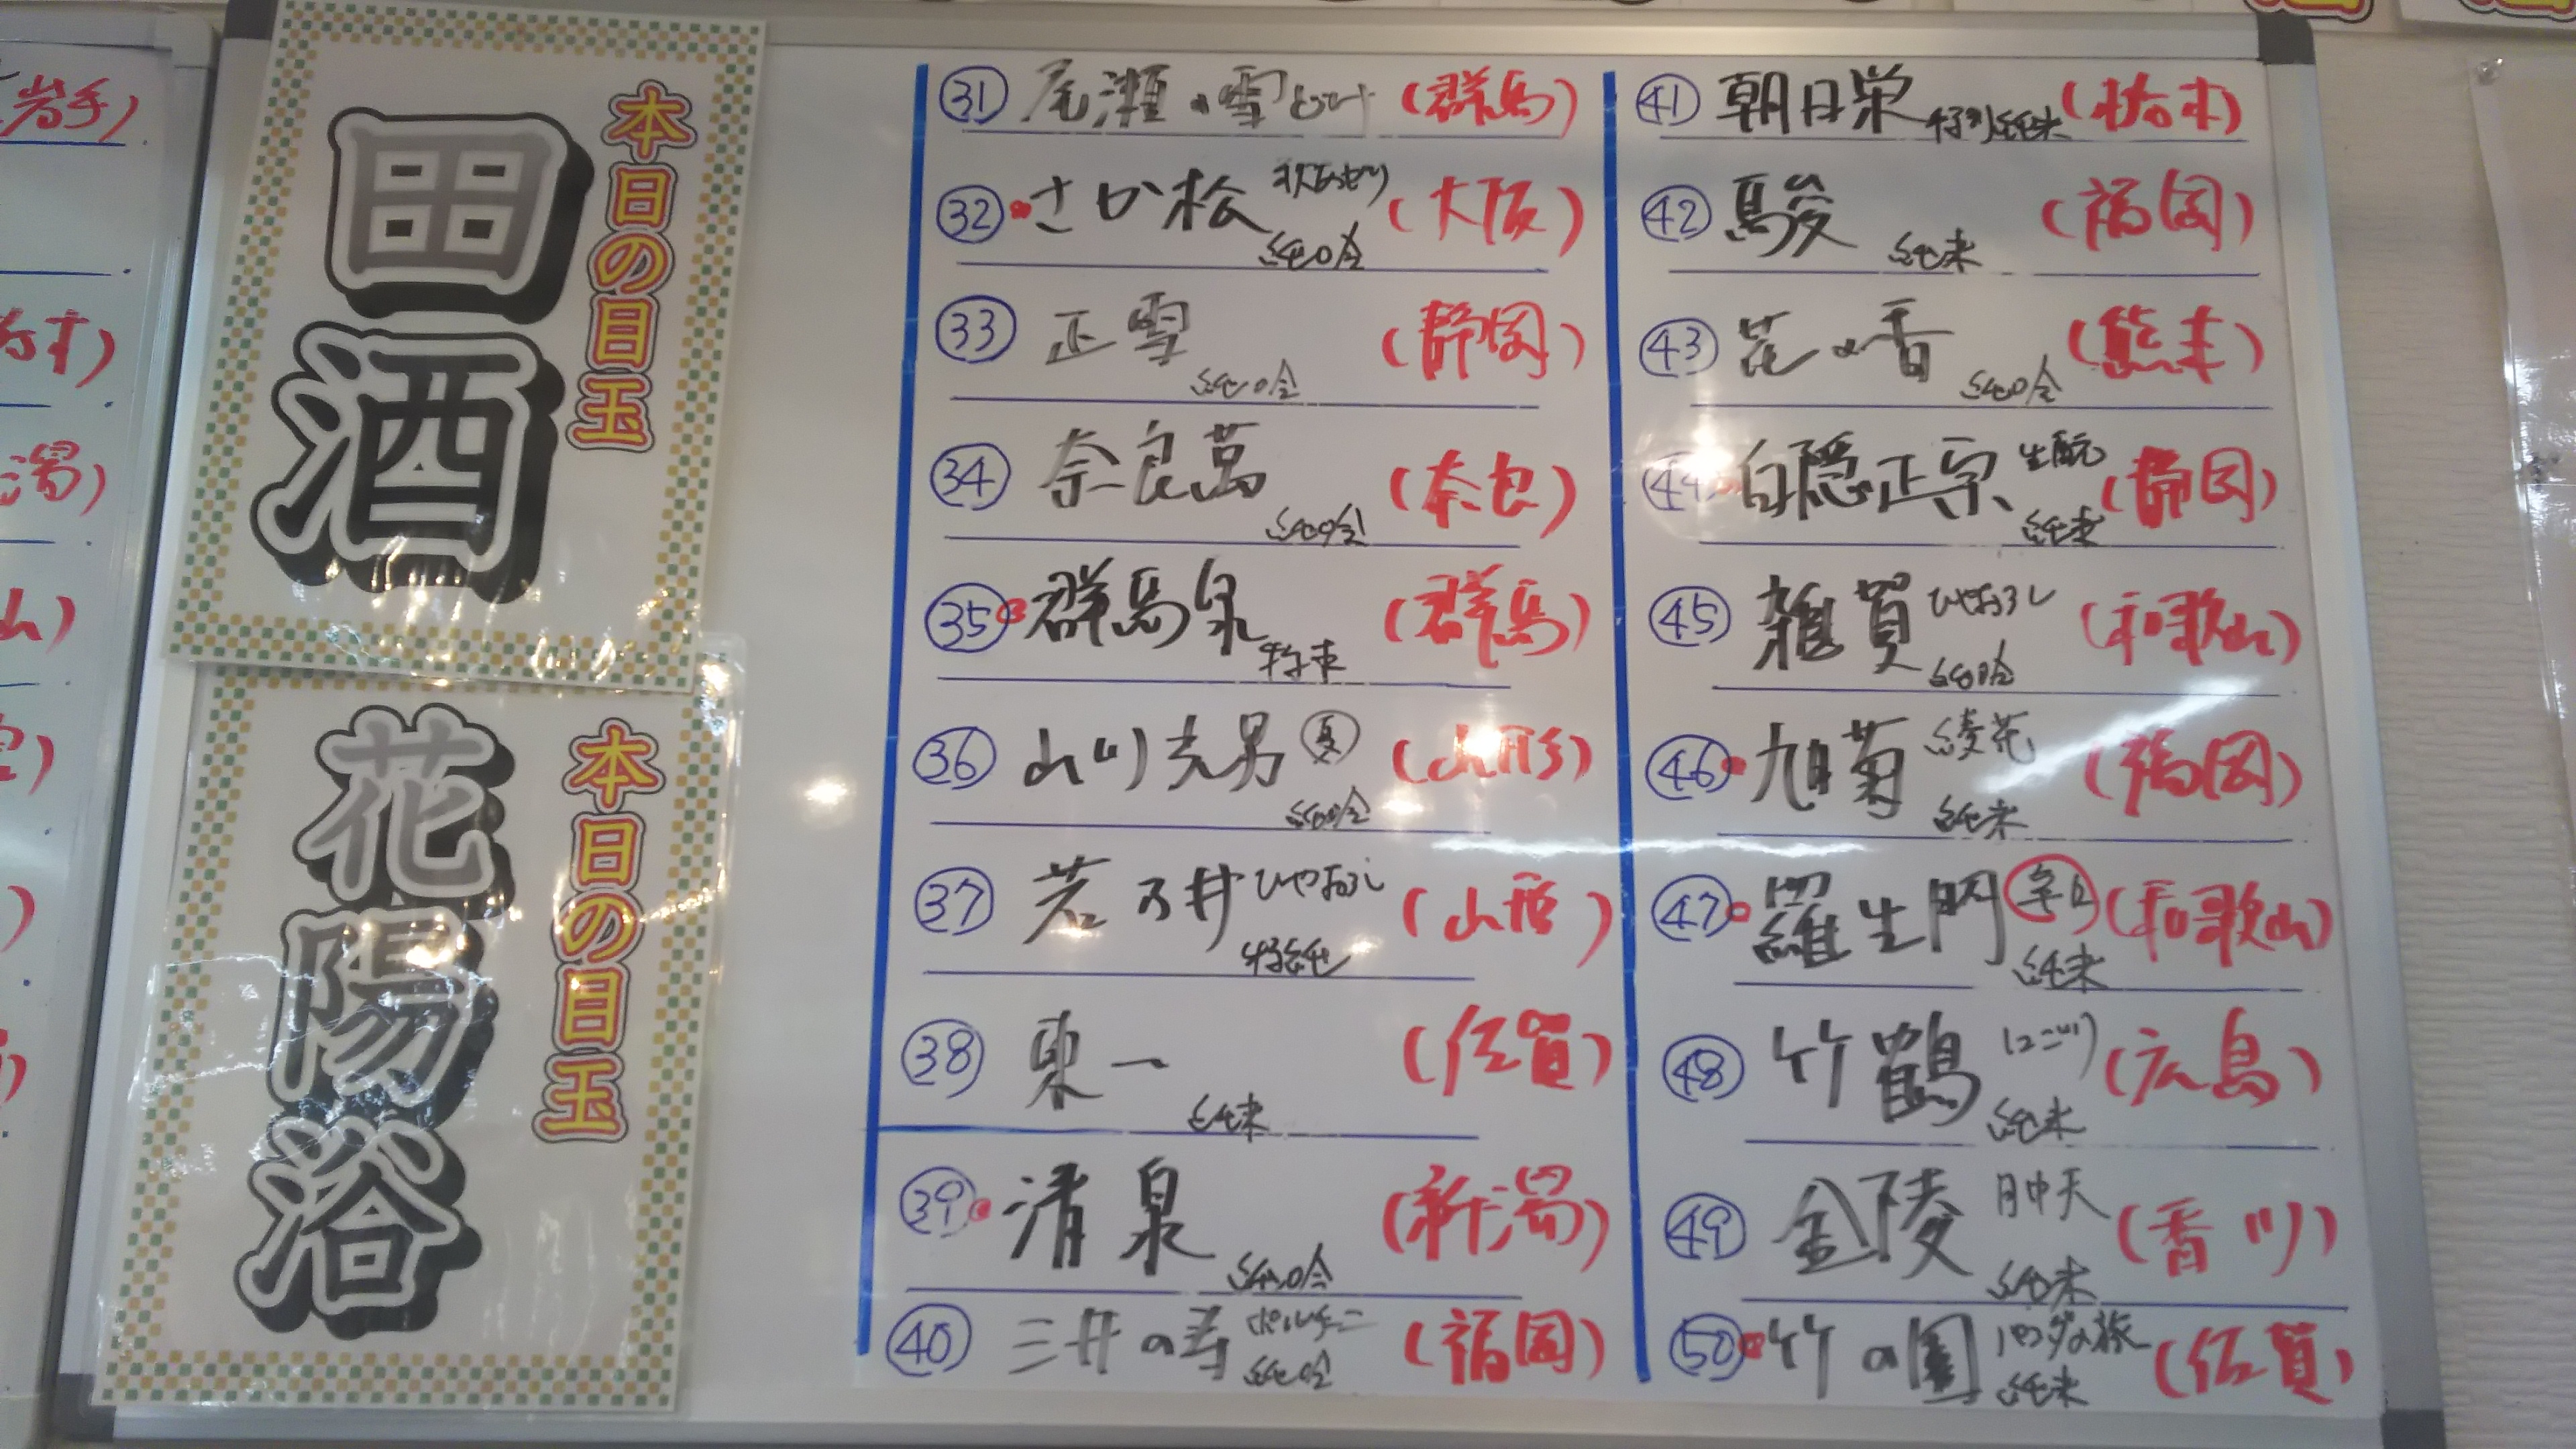 本日の目玉
田酒
本日の目玉
花陽浴
㉛ 尾瀬の雪どけ (群馬)
㉜ さか松 秋あがり 純吟 (大阪)
㉝ 正雪 純吟 (静岡)
㉞ 奈良萬 純吟 (奈良)
㉟ 群馬泉 (群馬)
㊱ 山川光男 夏 純吟 (山形)
㊲ 若乃井 ひやおろし 特純 (山形)
㊳ 東一 純米 (佐賀)
㊴ 清泉 純吟 (新潟)
㊵ 三井の寿 ポルチーニ 純吟 (福岡)
㊶ 朝日栄 特別純米 (栃木)
㊷ 駿 純米 (福岡)
㊸ 花の香 純吟 (熊本)
㊹ 白隠正宗 生酛 純米 (静岡)
㊺ 雑賀 ひやおろし 純吟 (和歌山)
㊻ 旭菊 綾花 純米 (福岡)
㊼ 羅生門 辛口 純米 (和歌山)
㊽ 竹鶴 にごり 純米 (広島)
㊾ 金陵 月中天 純米 (香川)
㊿ 竹の園 パンダの旅 純米 (佐賀)
岩手)
潟)
山)